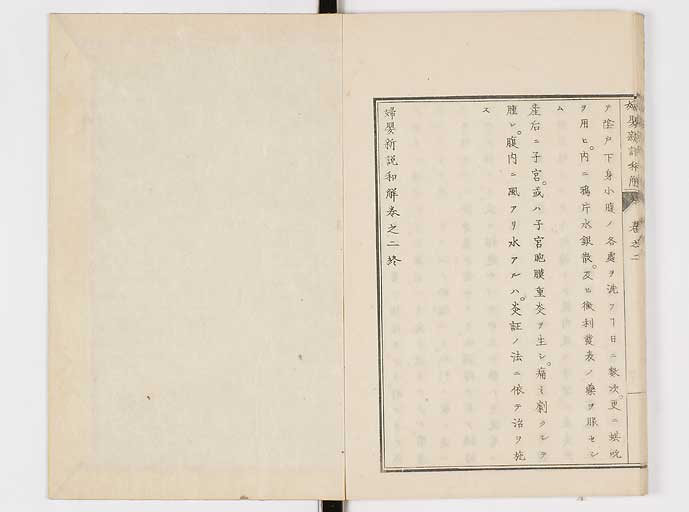 テ陰戸下身小腹ノ各處ヲ洗フヿ日ニ數次。更ニ蜞吮
ヲ用ヒ。内ニ鴉片水銀散。及ヒ微利發表ノ藥ヲ服セシ
ム
産后ニ子宮。或ハ子宮胞膜重炎ヲ生シ。痛ミ劇クシテ
腫レ。腹内ニ風アリ水アルハ。炎証ノ法ニ依テ治ヲ施
ス
婦嬰新説和解卷之二終